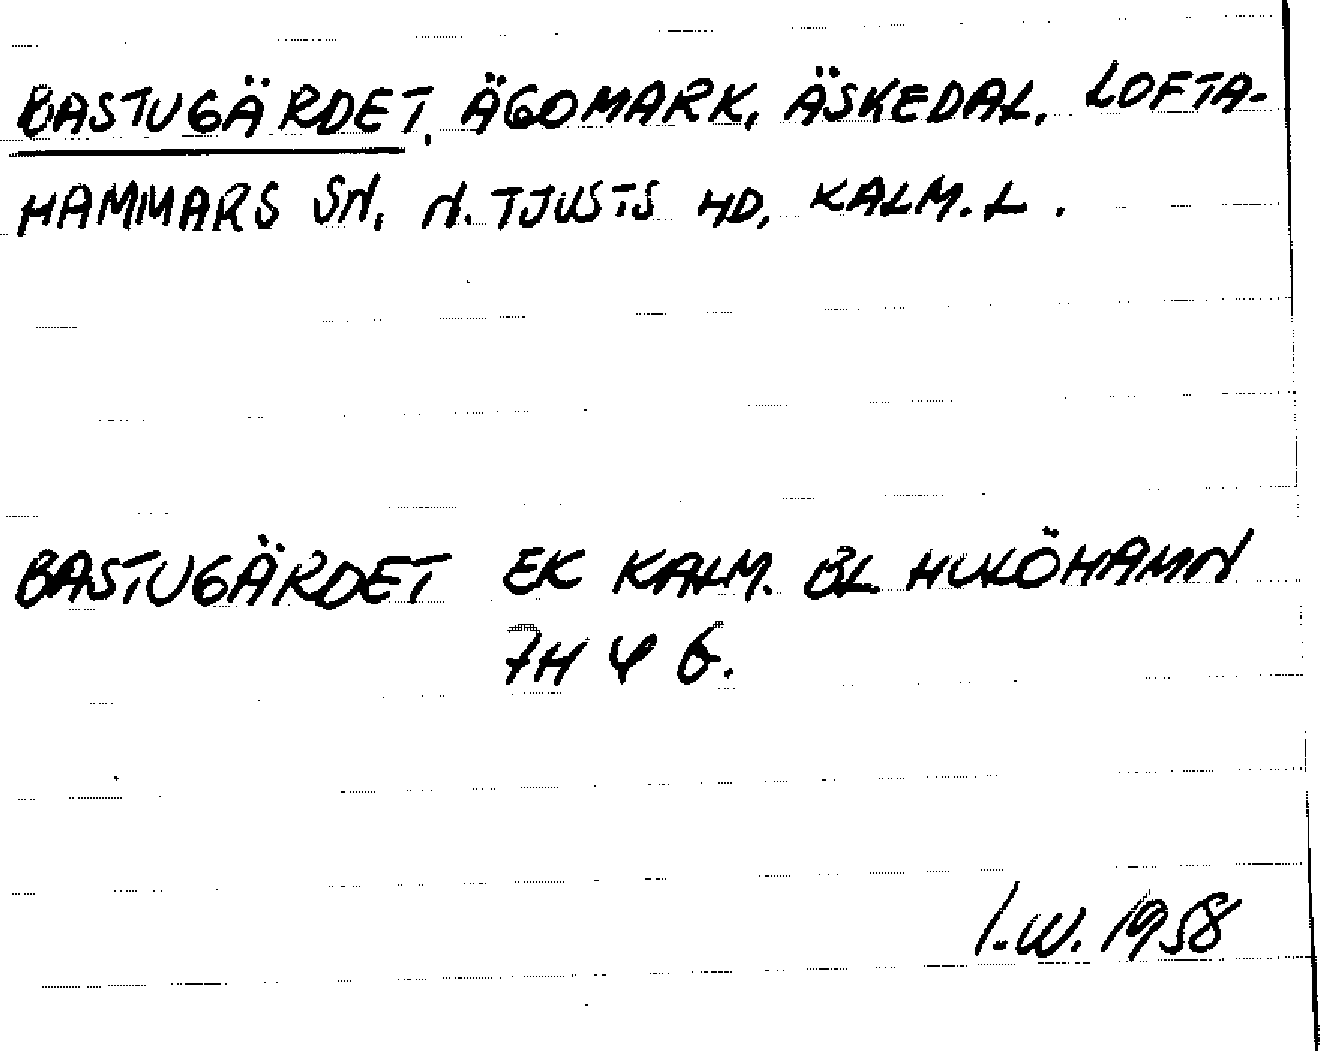 BASTUGÄRDET. ÄGOMARK, ÄSKEDAL, LOFTA-
HAMMARS SN, N. TJUSTS HD, KALM. L.
BASTUGÄRDET EK KALM. BL. HULÖHAMN
7H 4 G.
I.W. 1958